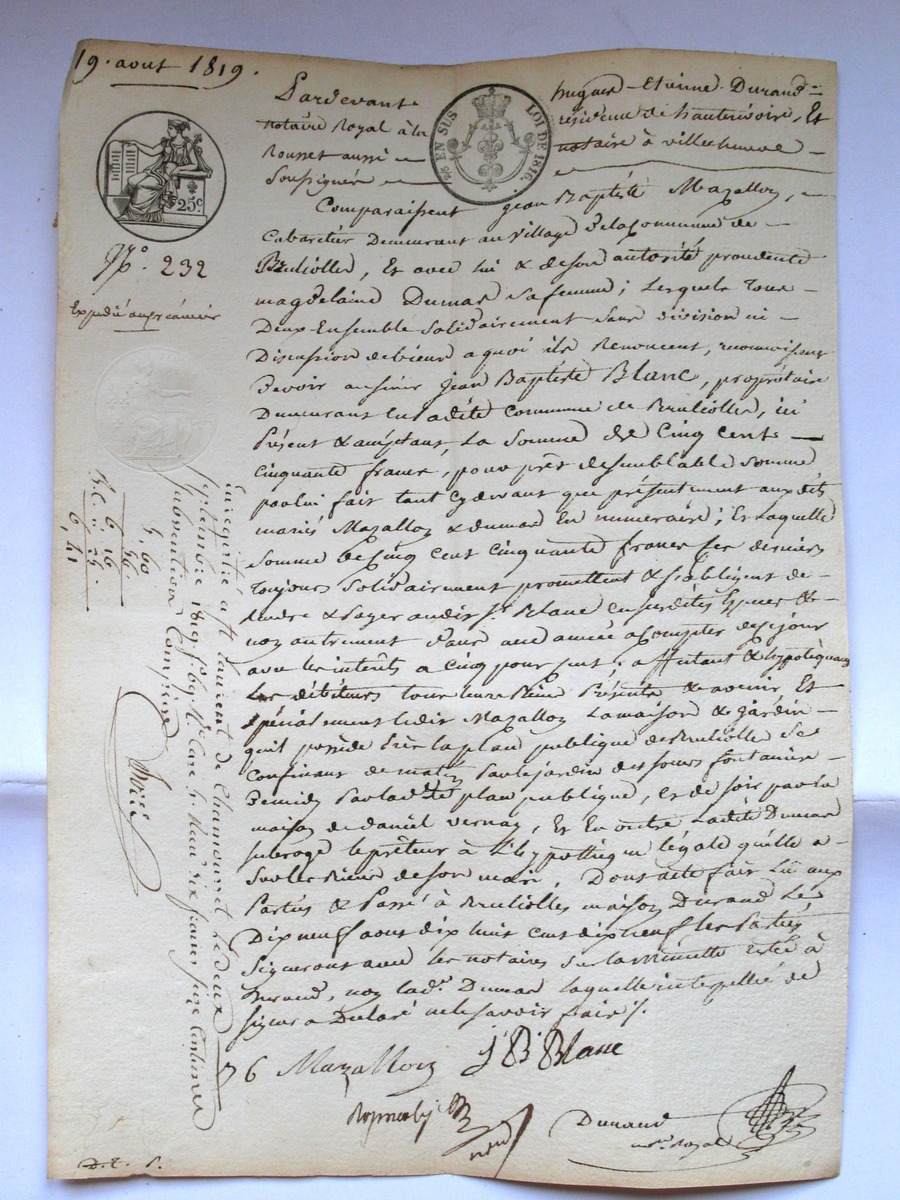 19. aout 1819.
Pardevant hugues-Etienne Durand
notaire Royal à la résidence de hauterivoire, Et
Rousset aussi notaire à villechenève
Soussignés
¼ EN SUS LOI DE 1816.
25 c
N.º 232
Expédié au créancier
Comparaissent jean Baptiste Mazalloz,
Cabaretier Demeurant au village De la Commune de
Brulliolles, Et avec lui & de son autorité procédente
magdelaine Dumas sa femme; Lesquels Tous
Deux Ensemble Solidairement Sans division ni
Discussion de biens a quoi ils Renoncent, reconnoissent
Devoir au sieur jean Baptiste Blanc, propriétaire
Demeurant en ladite Commune de Brulliolles, ici
Présent & acceptant, La Somme de Cinq Cent
Cinquante francs, pour prêt de semblable Somme
par lui fait tant cydevant que présentement auxdits
mariés Mazalloz & dumas En numeraire; Et Laquelle
Somme De Cinq Cent Cinquante francs Les derniers
Toujours Solidairement promettent & s'obligent de
Rendre & Payer audit Sr. Blanc en susdites Espèces &
non autrement Dans une année a Compter de ce jour
avec les intérêts a Cinq pour Cent; affectant & hypotèquant
Les débiteurs tous leurs Biens Présents & avenir, Et
Spécialement ledit Mazalloz La maison & jardin
qu'il possède Sur la place publique de Brulliolle Se
Confinant de matin Par le jardin des sœurs fontanière
De midi Par lad.te place publique, et de soir par la
maison de daniel vernay, Et En outre Ladite Dumas
subroge le prêteur à L'hypothèque légale qu'elle a
Sur les Biens de son mari, Dont acte fait Lu aux
Parties & Passé à Brulliolles maison Durand Le
Dix neuf aout dix huit Cent dix neuf Les Parties
Signeront avec les notaires Sur la minutte restée à
Durand, non lad.e Dumas Laquelle interpellée de
signer a Déclaré ne le savoir faire/.
Mazalloz J B Blanc
Durand
n.re Royal
Enregistré a St Laurent de Chamousset Le deux
septembre 1819
Subvention Comprise
5, 60
56
6 16
6, 41
D. E. P.